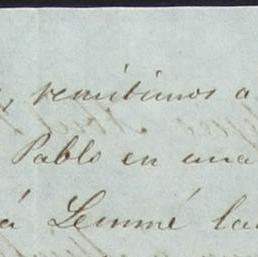 remitimos a
Pablo en una
á Lemmé la